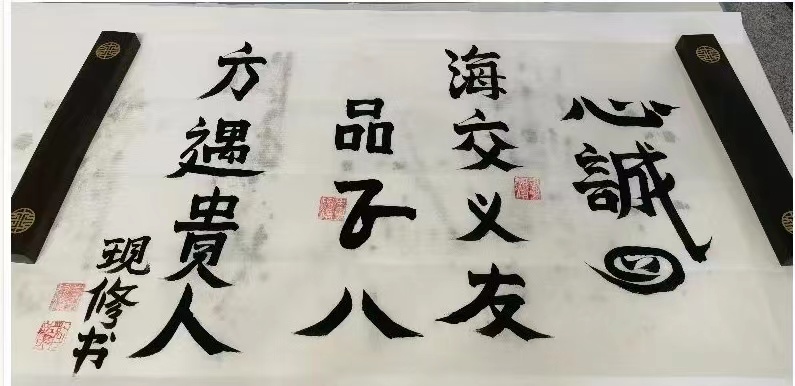 心誠四
海交义友
品正八
方遇貴人
現修书